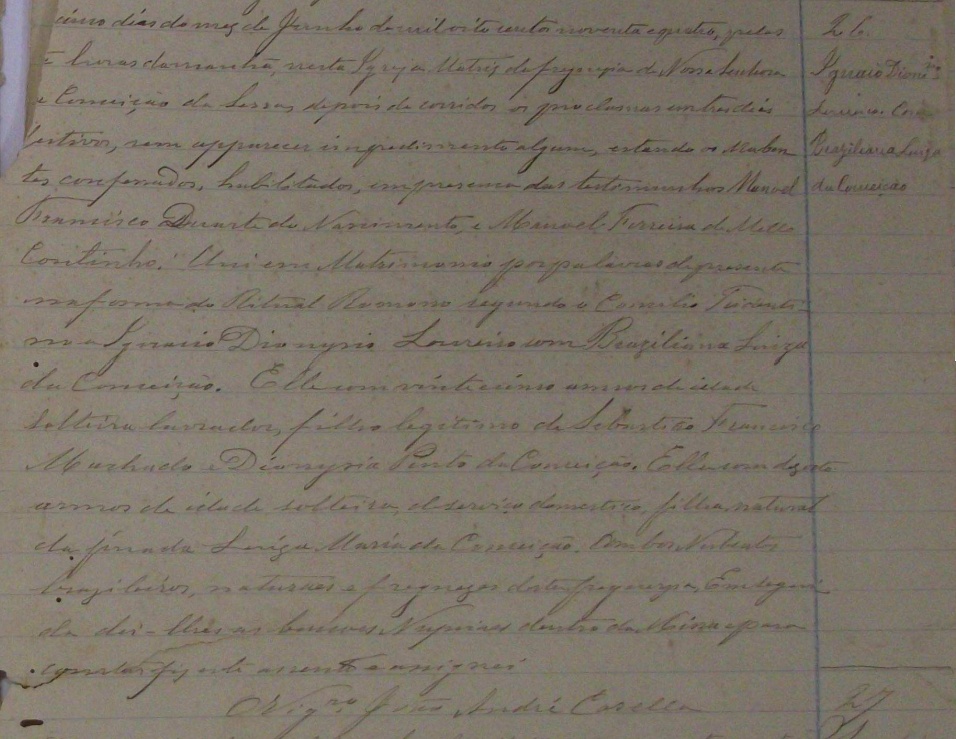 cinco dias do mez de Junho de mil oito centos noventa e quatro, pelas
horas da manhã, nesta Igreja Matriz da freguezia de Nossa Senhora
Conceição da Serra, depois de corridos os proclamas em tres dias
festivos, sem apparecer impedimento algum, estando os Nuben
tes confessados, habilitados, em presença das testimunhas Manoel
Francisco Duarte do Nascimento, e Manoel Ferreira de Mello
Coitinho. Uni em Matrimonio por palavras de presente
na forma do Ritual Romano segundo o Concilio Tridenti
no a Ignacio Dionysio Loureiro com Braziliana Luiza
da Conceição. Elle com vinte cinco annos de idade
solteiro lavrador, filho legitimo de Sebastião Francisco
Machado e Dionysia Pinto da Conceição. Ella com dezoito
annos de idade solteira, de serviço domestico, filha natural
da finada Luiza Maria da Conceição. Ambos Nubentes
brazileiros, naturaes e freguezes desta freguezia, Em segui
da dei-lhes as bençoes Nupciaes dentro da Missa e para
constar fiz este assento e assignei
O Vigro. João André Casella
26.
Ignacio Dioni
Loureiro. Com
Braziliana Luiza
da Conceição
27